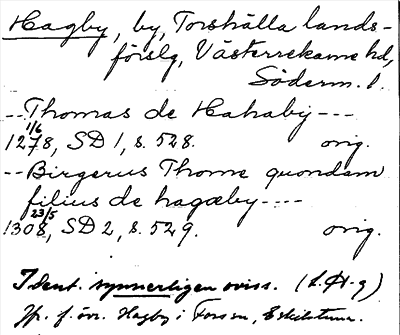 Hagby, by, Torshälla lands-
förslg, Västerrekarne hd,
Söderm. l.
-- Thomas de Hahaby ---
1/6
1278, SD 1, s. 528. orig.
-- Birgerus Thome quondam
filius de hagæby ----
23/5
1308, SD 2, s. 529. orig.
Ident. synnerligen oviss. (L. H-g)
Jfr. f. övr. Hagby i Fors sn, Eskilstuna.